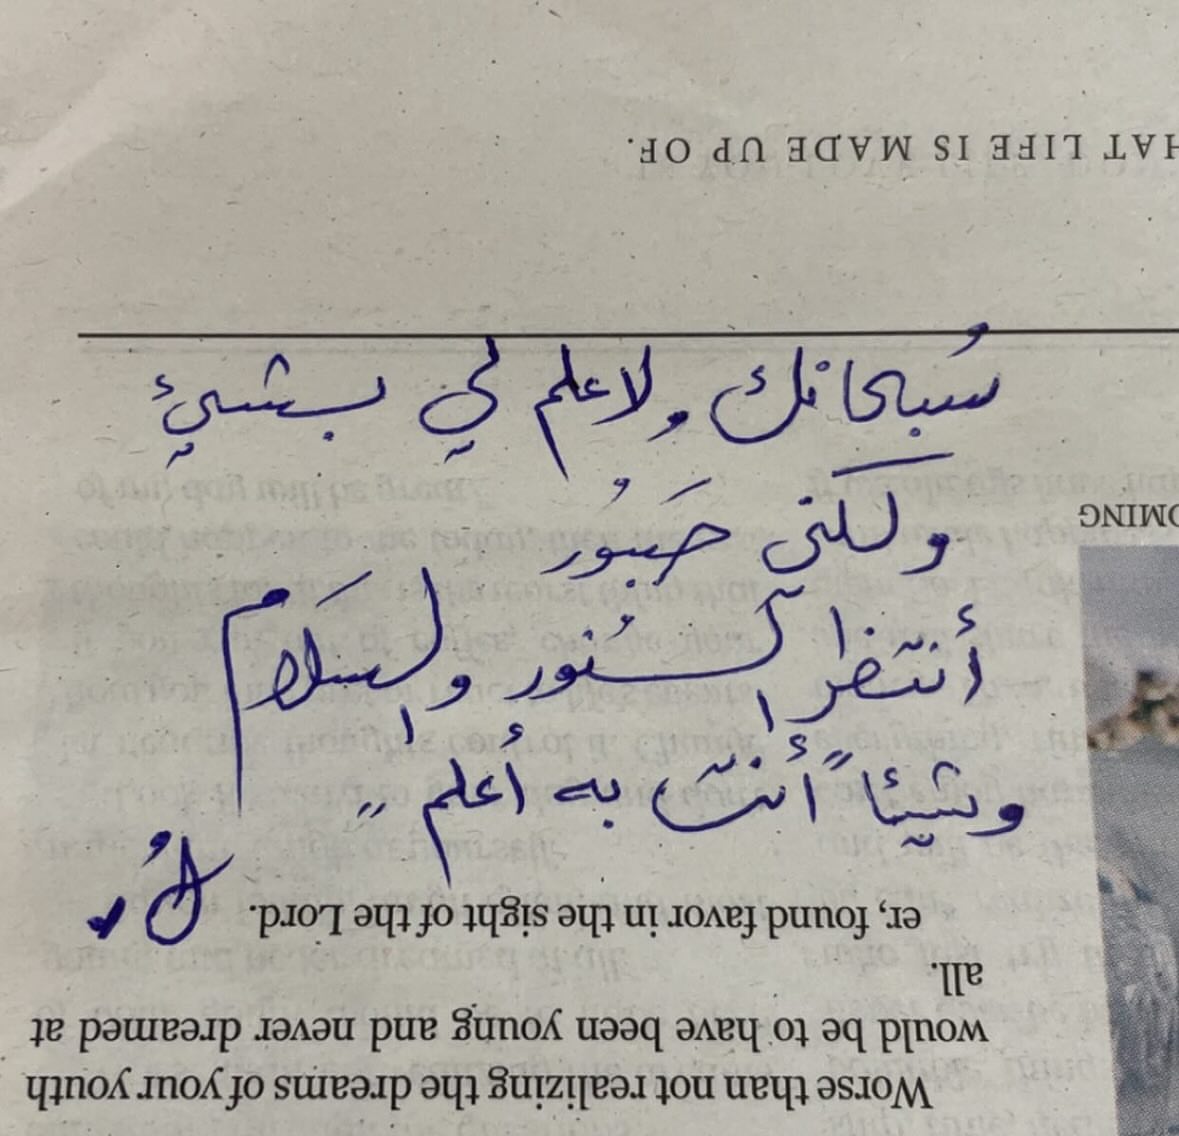 سُبحانك ولا علم لي بشيئ
ولكنى صَبُور
أنتظر السُنور والسلام
وشيئاً أنت به أعلم ,,
HAT LIFE IS MADE UP OF.
OMING
Worse than not realizing the dreams of your youth
would be to have been young and never dreamed at
all.
er, found favor in the sight of the Lord.